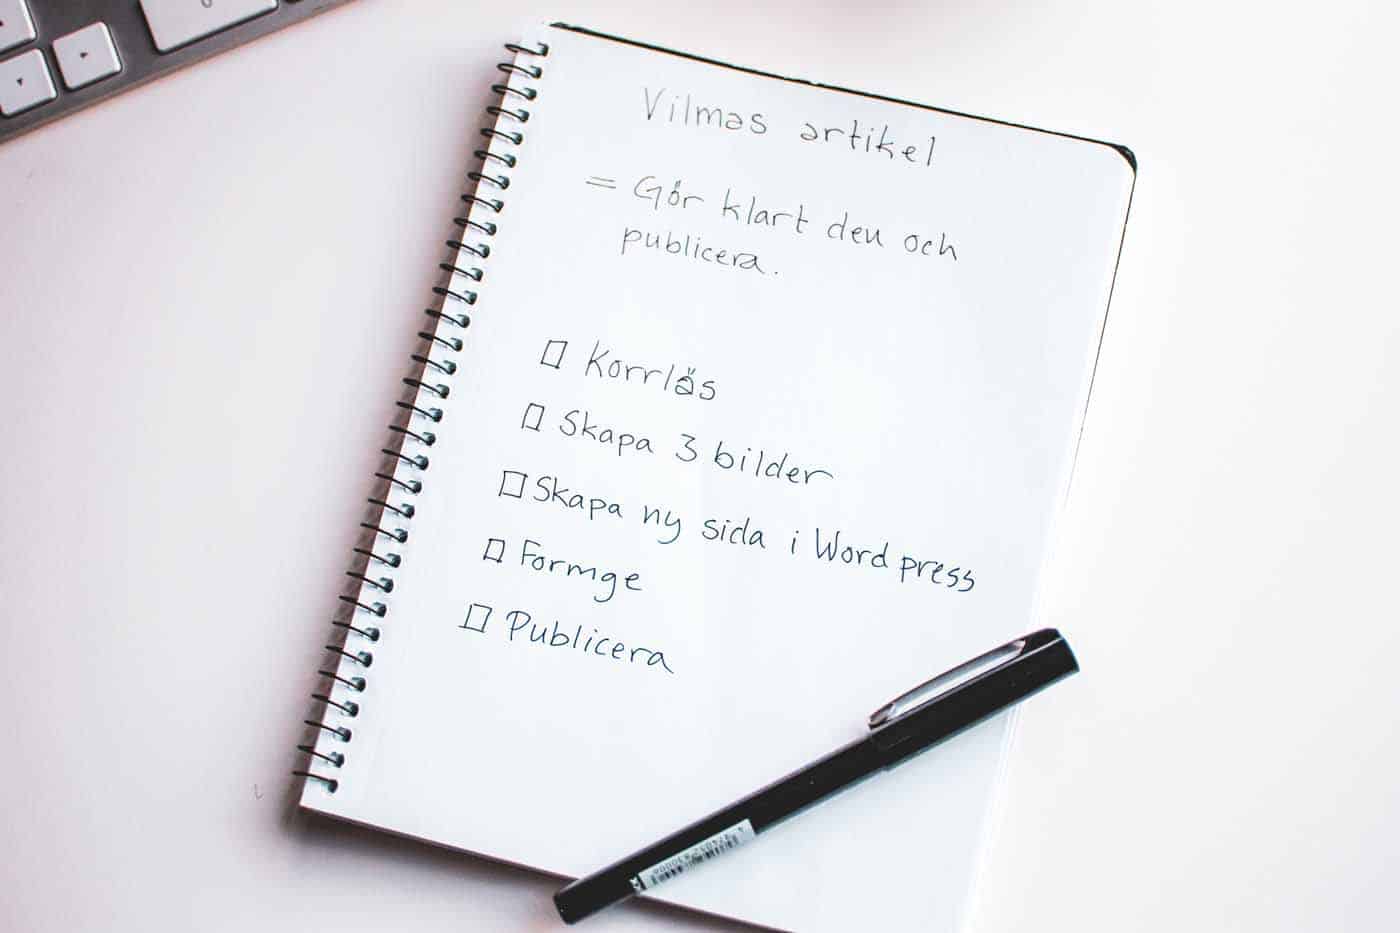 Vilmas artikel
= Gör klart den och
publicera.
Korrläs
Skapa 3 bilder
Skapa ny sida i Wordpress
Formge
Publicera